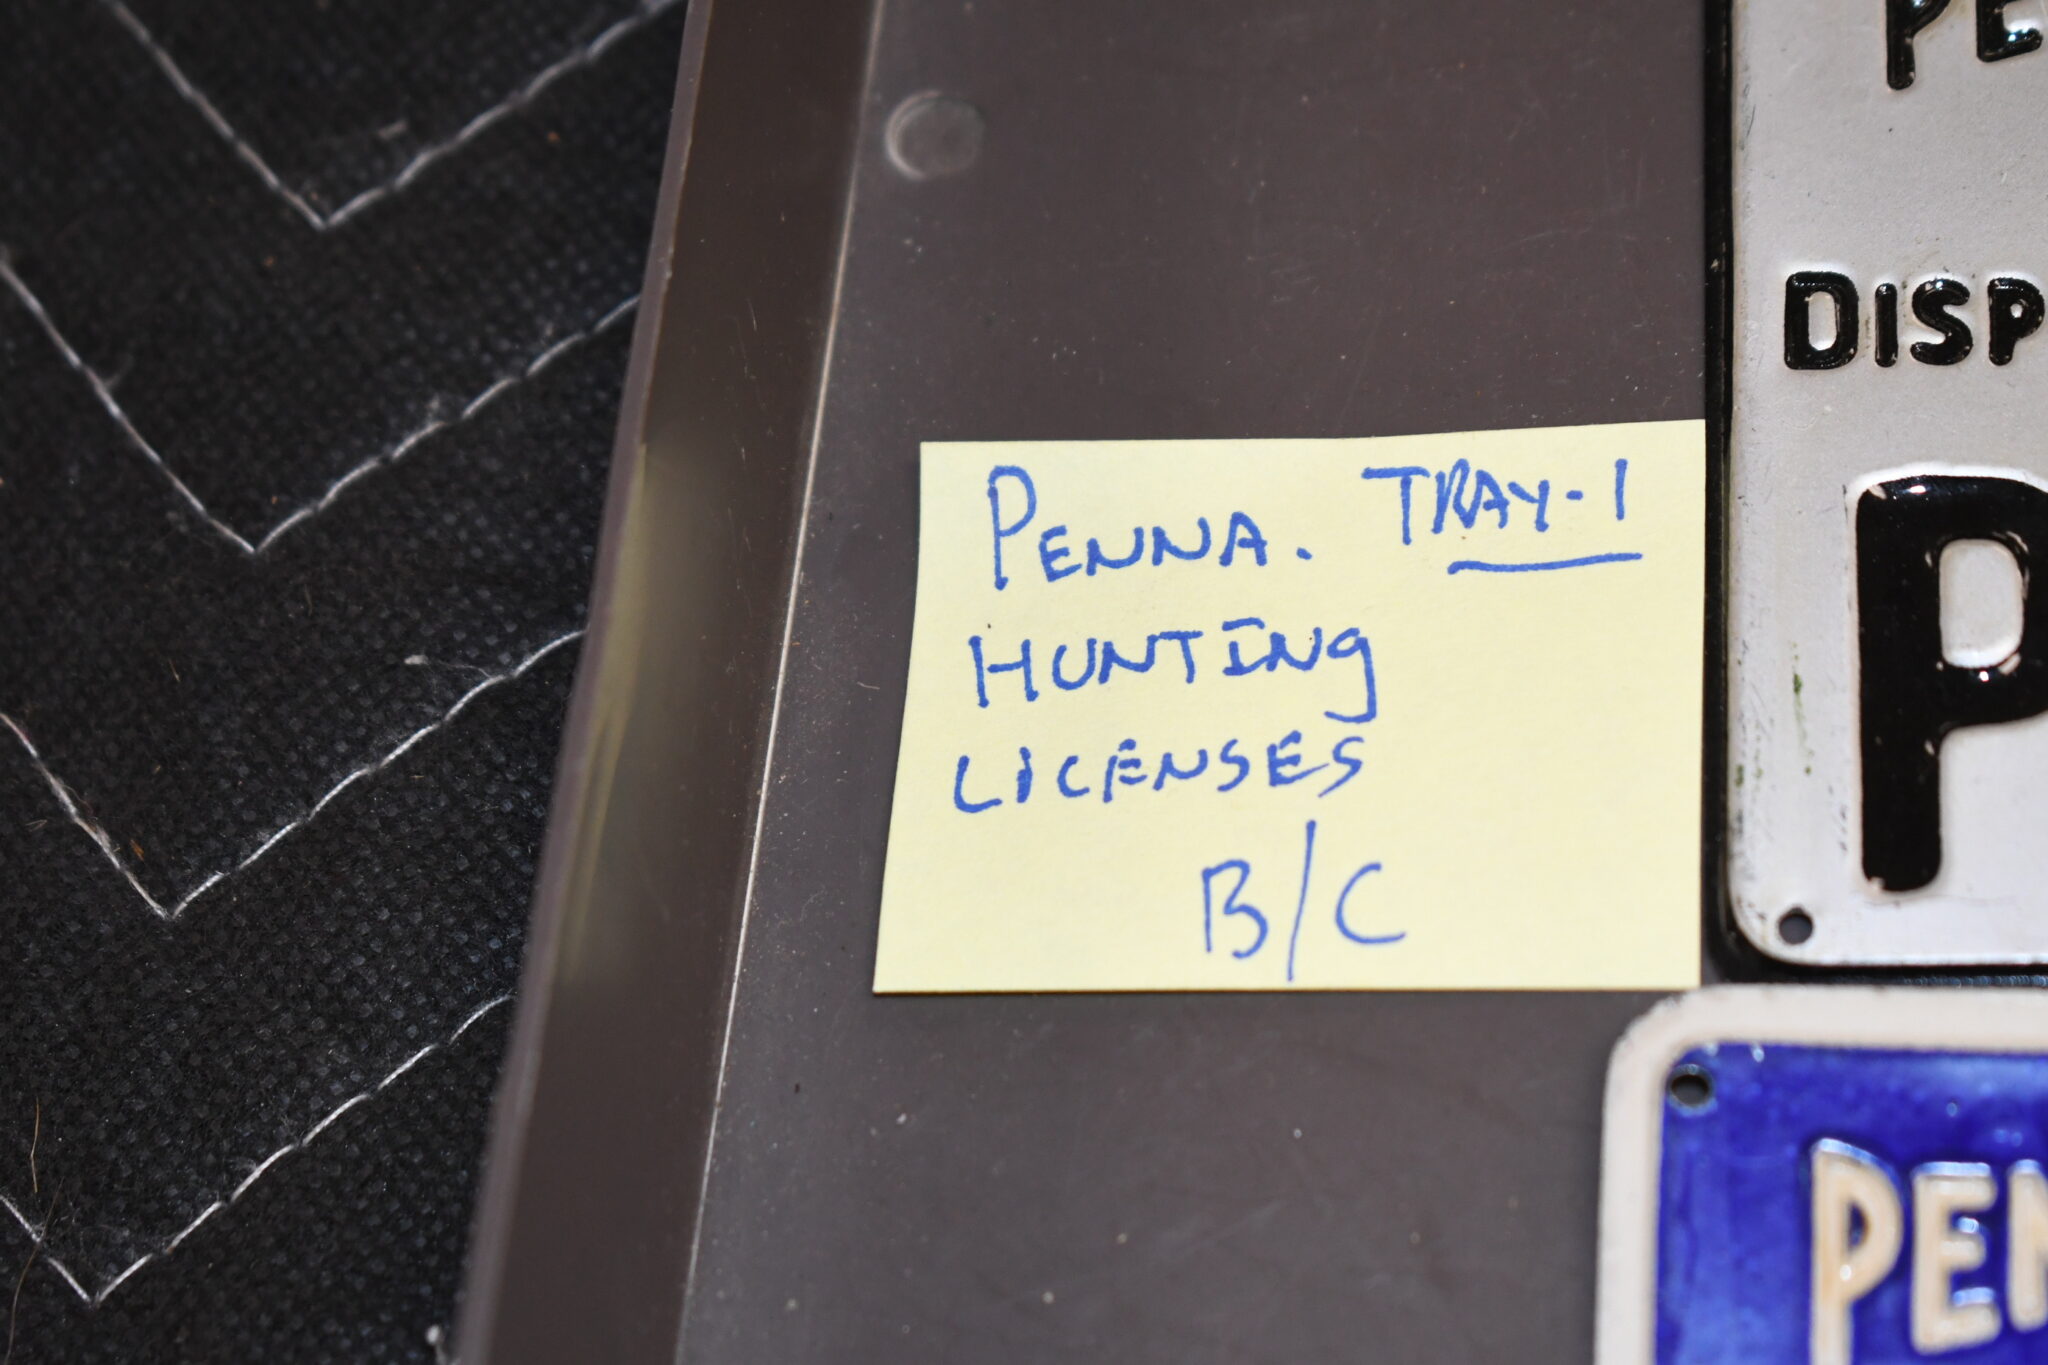 PENNA. TRAY-1
HUNTING
LICENSES
B/C
PE
DISP
P
PEN